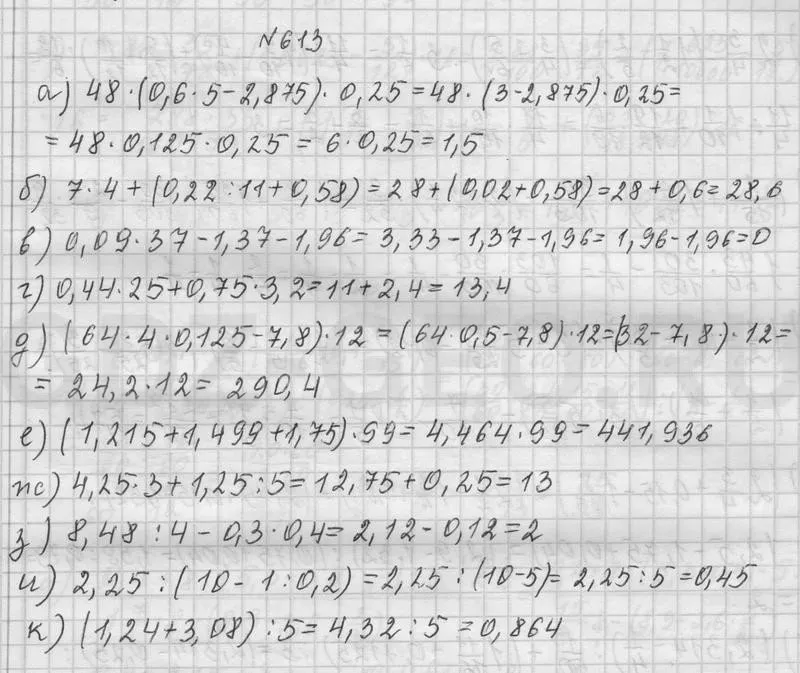 №613
а) 48·(0,6·5-2,875)·0,25=48·(3-2,875)·0,25=
=48·0,125·0,25=6·0,25=1,5
б) 7·4+(0,22:11+0,58)=28+(0,02+0,58)=28+0,6=28,6
в) 0,09·37-1,37-1,96=3,33-1,37-1,96=1,96-1,96=0
г) 0,44·25+0,75·3,2=11+2,4=13,4
д) (64·4·0,125-7,8)·12=(64·0,5-7,8)·12=(32-7,8)·12=
=24,2·12=290,4
е) (1,215+1,499+1,75)·99=4,464·99=441,936
ж) 4,25·3+1,25:5=12,75+0,25=13
з) 8,48:4-0,3·0,4=2,12-0,12=2
и) 2,25:(10-1:0,2)=2,25:(10-5)=2,25:5=0,45
к) (1,24+3,08):5=4,32:5=0,864